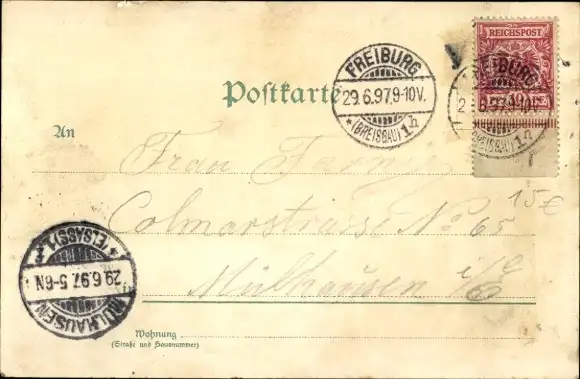 REICHSPOST
FREIBURG
29.6.97.9-10V.
*(BREISGAU)1h
FREIBURG
(BREISGAU)1h
Postkarte
An
Frau
15€
Colmarstraße No 65
Mülhausen i/E
*(ELSASS)1.*
29.6.97.5-6N
MÜLHAUSEN
Wohnung
(Straße und Hausnummer)